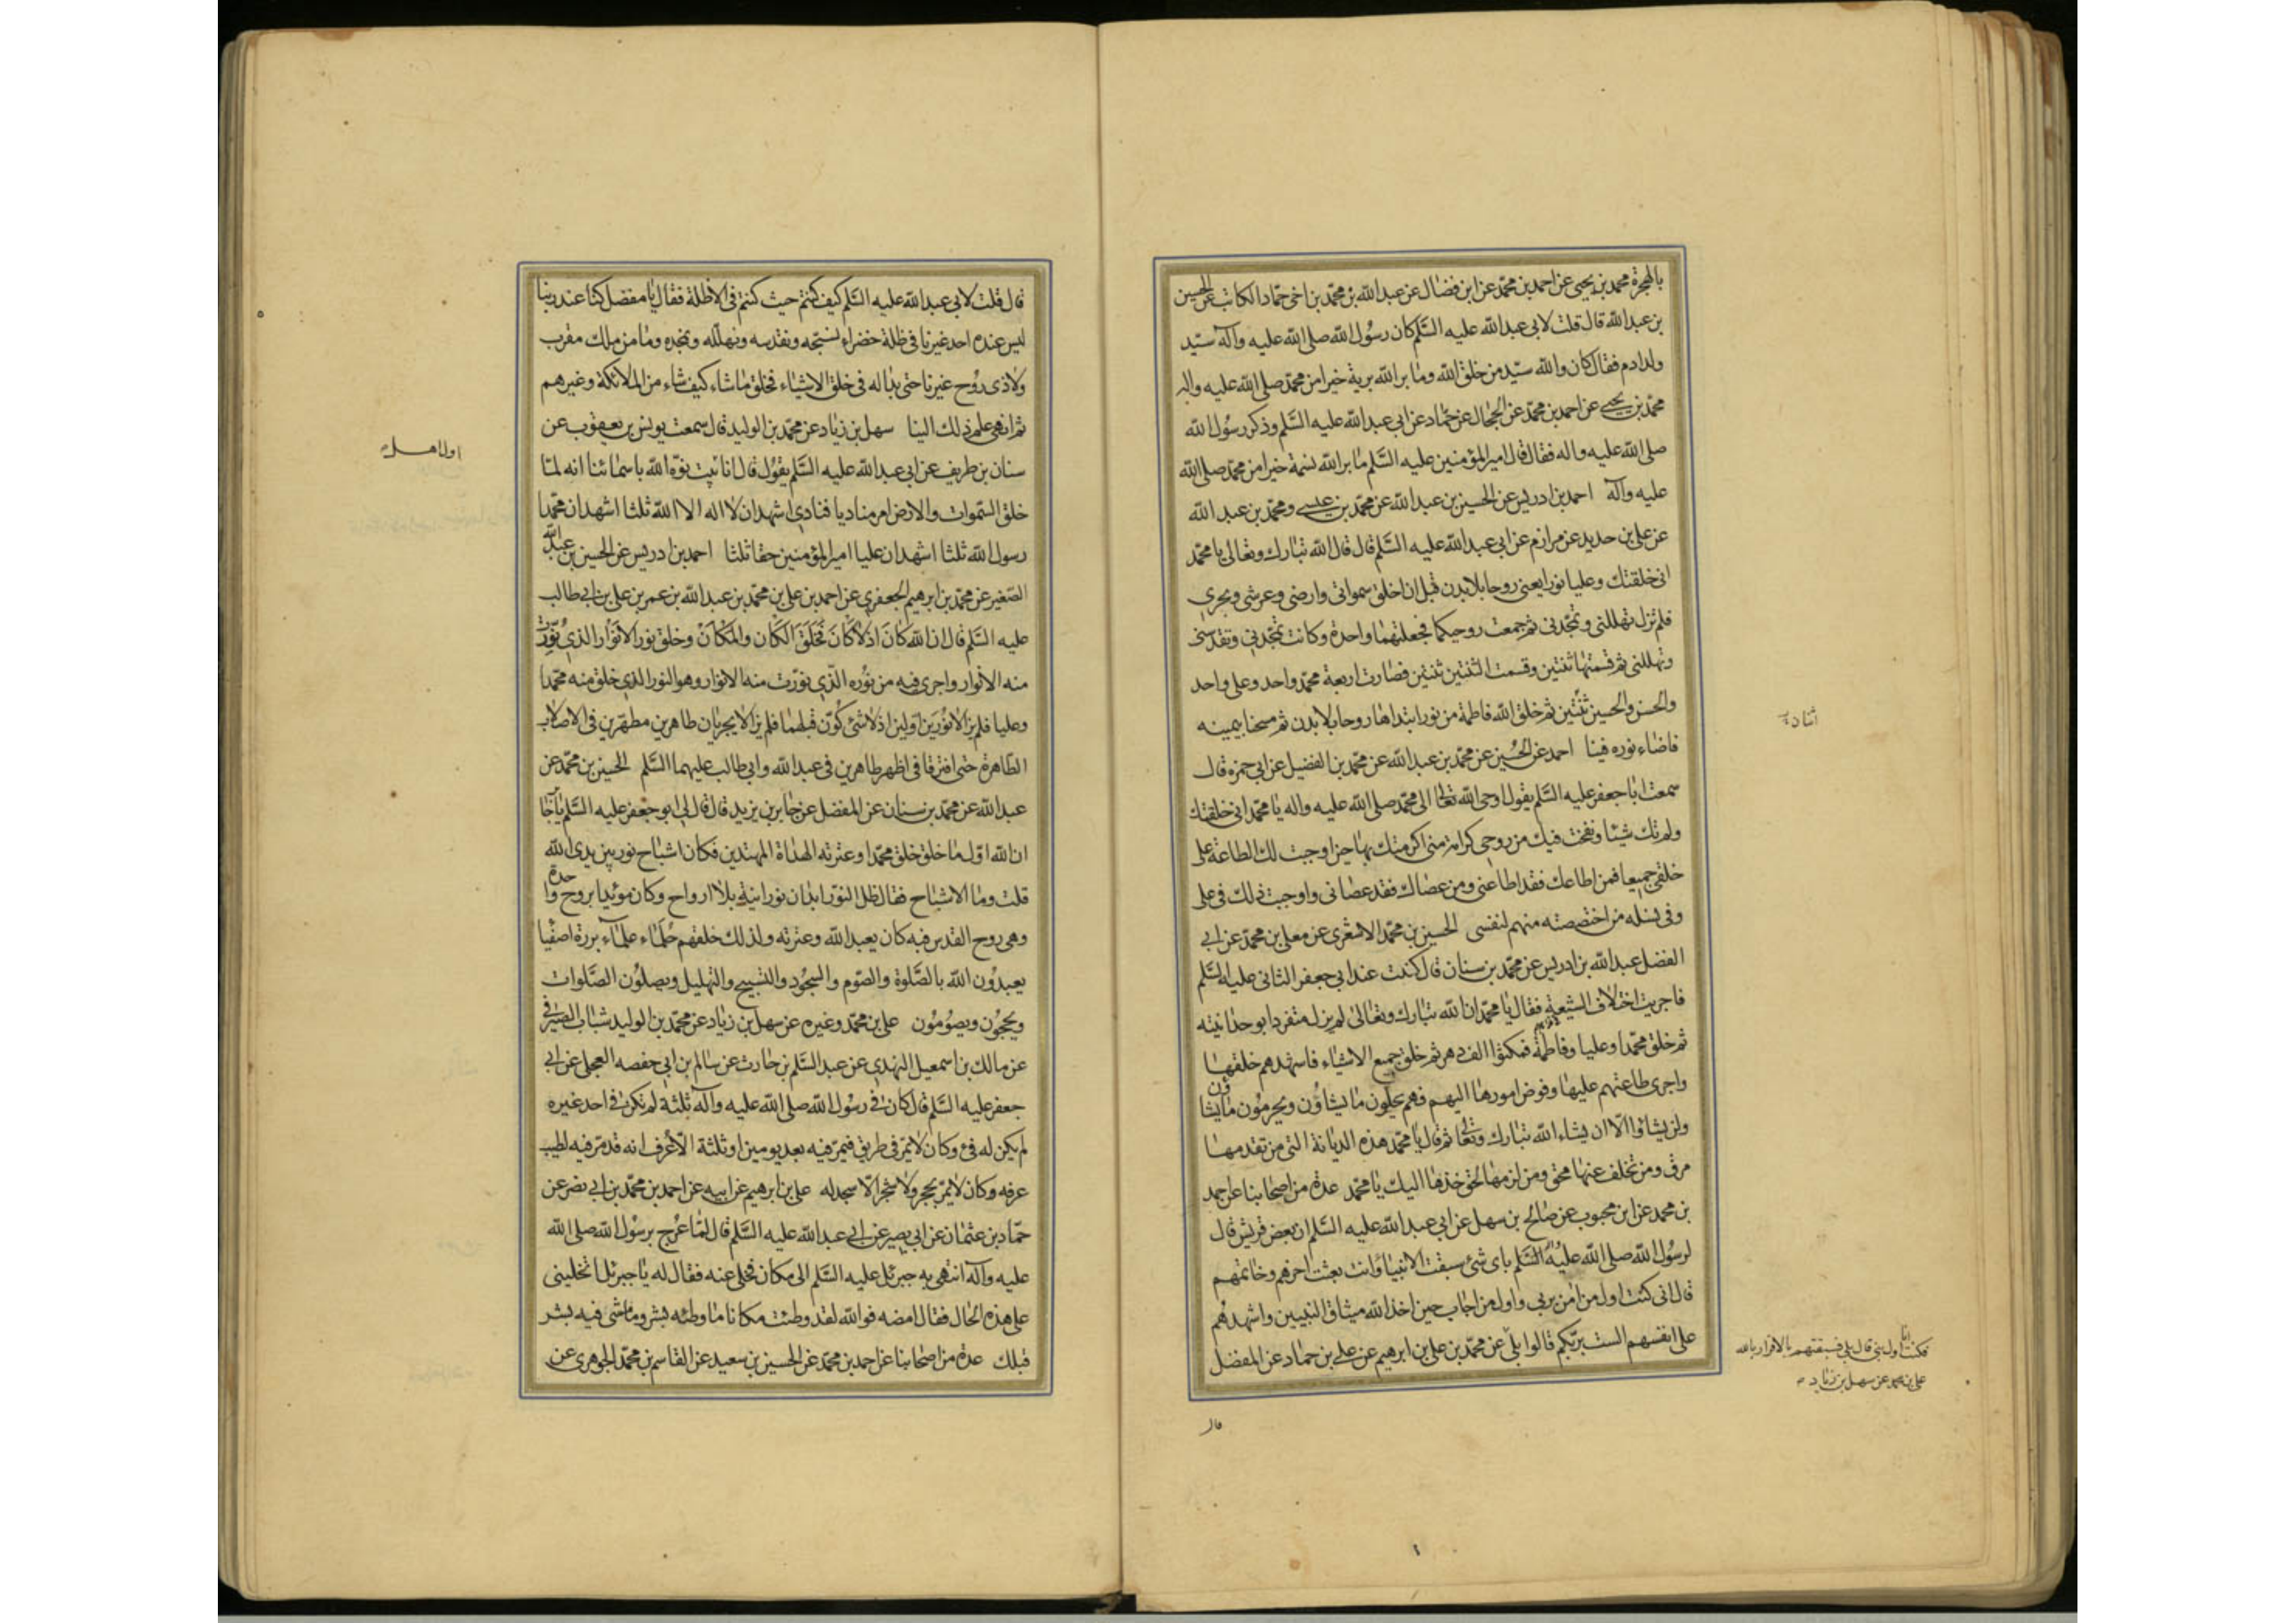 بالهجرة محمد بن يحيى عن احمد بن محمد عن ابن فضال عن عبد الله بن محمد بن اخي حماد الكاتب عن الحسين
بن عبد الله قال قلت لابي عبد الله عليه السلم كان رسول الله صلى الله عليه وآله سيد
ولد ادم فقال كان والله سيد من خلق الله وما برا الله برية خيرا من محمد صلى الله عليه واله
محمد بن يحيى عن احمد بن محمد عن الحجال عن حماد عن ابي عبد الله عليه السلم وذكر رسول الله
صلى الله عليه واله فقال قال امير المؤمنين عليه السلم ما برا الله نسمة خيرا من محمد صلى الله
عليه وآله احمد بن ادريس عن الحسين بن عبد الله عن محمد بن عيسى ومحمد بن عبد الله
عن علي بن حديد عن مرازم عن ابي عبد الله عليه السلم قال قال الله تبارك وتعالى يا محمد
انى خلقتك وعليا نورا يعنى روحا بلا بدن قبل ان اخلق سمواتى وارضى وعرشى وبحرى
فلم تزل تهللنى وتمجدنى ثم جمعت روحيكما فجعلتهما واحدة وكانت تمجدنى وتقدسنى
وتهللنى ثم قسمتها ثنتين وقسمت الثنتين ثنتين فصارت اربعة محمد واحد وعلى واحد
والحسن والحسين ثنتين ثم خلق الله فاطمة من نور ابتداها روحا بلا بدن ثم مسحنا بيمينه
فاضاء نوره فينا احمد عن الحسين عن محمد بن عبد الله عن محمد بن الفضيل عن ابي حمزه قال
سمعت ابا جعفر عليه السلم يقول اوحى الله تعالى الى محمد صلى الله عليه واله يا محمد انى خلقتك
ولم تك شيئا ونفخت فيك من روحى كرامة منى اكرمتك بها حين اوجبت لك الطاعة على
خلقى جميعا فمن اطاعك فقد اطاعنى ومن عصاك فقد عصانى واوجبت ذلك فى على
وفى نسله من اختصصته منهم لنفسى الحسين بن محمد الاشعرى عن معلى بن محمد عن ابي
الفضل عبد الله بن ادريس عن محمد بن سنان قال كنت عند ابي جعفر الثانى عليه السلم
فاجريت اختلاف الشيعة فقال يا محمد ان الله تبارك وتعالى لم يزل متفردا بوحدانيته
ثم خلق محمدا وعليا وفاطمة فمكثوا الف دهر ثم خلق جميع الاشياء فاشهدهم خلقها
واجرى طاعتهم عليها وفوض امورها اليهم فهم يحلون ما يشاؤن ويحرمون ما يشاؤن
ولن يشاؤا الا ان يشاء الله تبارك وتعالى ثم قال يا محمد هذه الديانة التى من تقدمها
مرق ومن تخلف عنها محق ومن لزمها لحق خذها اليك يا محمد عدة من اصحابنا عن احمد
بن محمد عن ابن محبوب عن صالح بن سهل عن ابي عبد الله عليه السلم ان بعض قريش قال
لرسول الله صلى الله عليه السلم باى شئ سبقت الانبياء وانت بعثت اخرهم وخاتمهم
قال انى كنت اول من امن بربى واول من اجاب حين اخذ الله ميثاق النبيين واشهدهم
على انفسهم الست بربكم قالوا بلى عن محمد بن على بن ابرهيم عن على بن حماد عن المفضل
فكنت انا اول نبي قال بلى فسبقتهم بالاقرار بالله
على بن محمد عن سهل بن زياد
قال
قال قلت لابي عبد الله عليه السلم كيف كنتم حيث كنتم فى الاظلة فقال يا مفضل كنا عند ربنا
ليس عنده احد غيرنا فى ظلة خضراء نسبحه ونقدسه ونهلله ونمجده وما من ملك مقرب
ولا ذى روح غيرنا حتى بدا له فى خلق الاشياء فخلق ما شاء كيف شاء من الملائكة وغيرهم
ثم انهى علم ذلك الينا سهل بن زياد عن محمد بن الوليد قال سمعت يونس بن يعقوب عن
سنان بن طريف عن ابي عبد الله عليه السلم يقول قال انا بيت نوه الله باسمائنا انه لما
خلق السموات والارض امر مناديا فنادى اشهد ان لا اله الا الله ثلثا اشهد ان محمدا
رسول الله ثلثا اشهد ان عليا امير المؤمنين حقا ثلثا احمد بن ادريس عن الحسين بن عبد الله
الصغير عن محمد بن ابرهيم الجعفرى عن احمد بن على بن محمد بن عبد الله بن عمر بن على بن ابي طالب
عليه السلم قال ان الله كان اذ لا كان فخلق الكان والمكان وخلق نور الانوار الذى نورت
منه الانوار واجرى فيه من نوره الذى نورت منه الانوار وهو النور الذى خلق منه محمدا
وعليا فلم يزالا نورين اولين اذ لا شئ كون قبلهما فلم يزالا يجريان طاهرين مطهرين فى الاصلاب
الطاهرة حتى افترقا فى اطهر طاهرين فى عبد الله وابي طالب عليهما السلم الحسين بن محمد عن
عبد الله عن محمد بن سنان عن المفضل عن جابر بن يزيد قال قال لى ابو جعفر عليه السلم يا جابر
ان الله اول ما خلق خلق محمدا وعترته الهداة المهتدين فكانوا اشباح نور بين يدى الله
قلت وما الاشباح فقال ظل النور ابدان نورانية بلا ارواح وكان مؤيدا بروح واحدة
وهى روح القدس فبه كان يعبد الله وعترته ولذلك خلقهم حلماء علماء بررة اصفيا
يعبدون الله بالصلوة والصوم والسجود والتسبيح والتهليل ويصلون الصلوات
ويحجون ويصومون على بن محمد وغيره عن سهل بن زياد عن محمد بن الوليد شباب الصيرفى
عن مالك بن اسمعيل النهدى عن عبد السلم بن حارث عن سالم بن ابي حفصه العجلى عن ابي
جعفر عليه السلم قال كان فى رسول الله صلى الله عليه وآله ثلثة لم تكن فى احد غيره
لم يكن له فئ وكان لا يمر فى طريق فيمر فيه بعد يومين او ثلثة الا عرف انه قد مر فيه لطيب
عرفه وكان لا يمر بحجر ولا شجر الا سجد له على بن ابرهيم عن ابيه عن احمد بن محمد بن ابي نصر عن
حماد بن عثمان عن ابي بصير عن ابي عبد الله عليه السلم قال لما عرج برسول الله صلى الله
عليه وآله انتهى به جبرئل عليه السلم الى مكان فخلى عنه فقال له يا جبرئل اتخلينى
على هذه الحال فقال امضه فوالله لقد وطئت مكانا ما وطئه بشر وما مشى فيه بشر
قبلك عدة من اصحابنا عن احمد بن محمد عن الحسين بن سعيد عن القاسم بن محمد الجوهرى عن